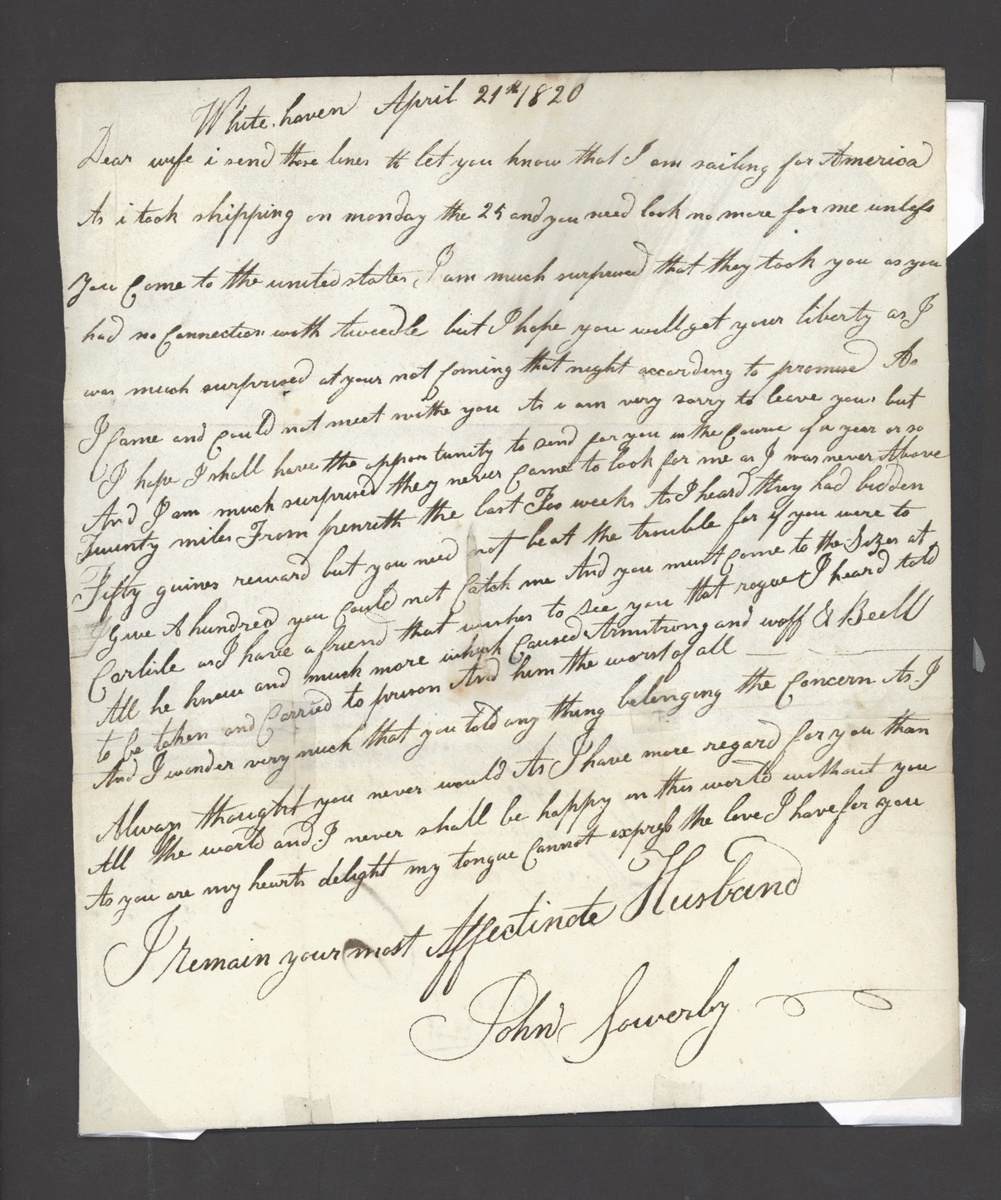 White-haven April 21th 1820
Dear wife i send these lines to let you know that I am sailing for America
As i took shipping on monday the 25 and you need look no more for me unless
you Come to the united states I am much surprised that they took you as you
had no Connection with tweedle but I hope you will get your liberty as I
was much surprised at your not Coming that night according to promise As
I Came and Could not meet withe you As i am very sorry to leave you but
I hope I shall have the opportunity to send for you in the Course of a year or so
And I am much surprised they never Came to look for me as I was never Above
Twenty miles From penreth the last Foo weeks As I heard they had bidden
Fifty guines reward but you need not be at the trouble for if you were to
Give A hundred you Could not Catch me And you must Come to the Sizes at
Carlisle as I have a friend that wishes to see you that rogue I heard told
All he knew and much more which Caused Armstrong and woff & Beell
to be taken and Carried to prison And him the worst of all
And I wonder very much that you told any thing belonging the Concern As I
Always thought you never would As I have more regard for you than
All the world and I never shall be happy in this world without you
As you are my hearts delight my tongue Cannot express the love I have for you
I remain your most Affectinate Husband
John Sowerby